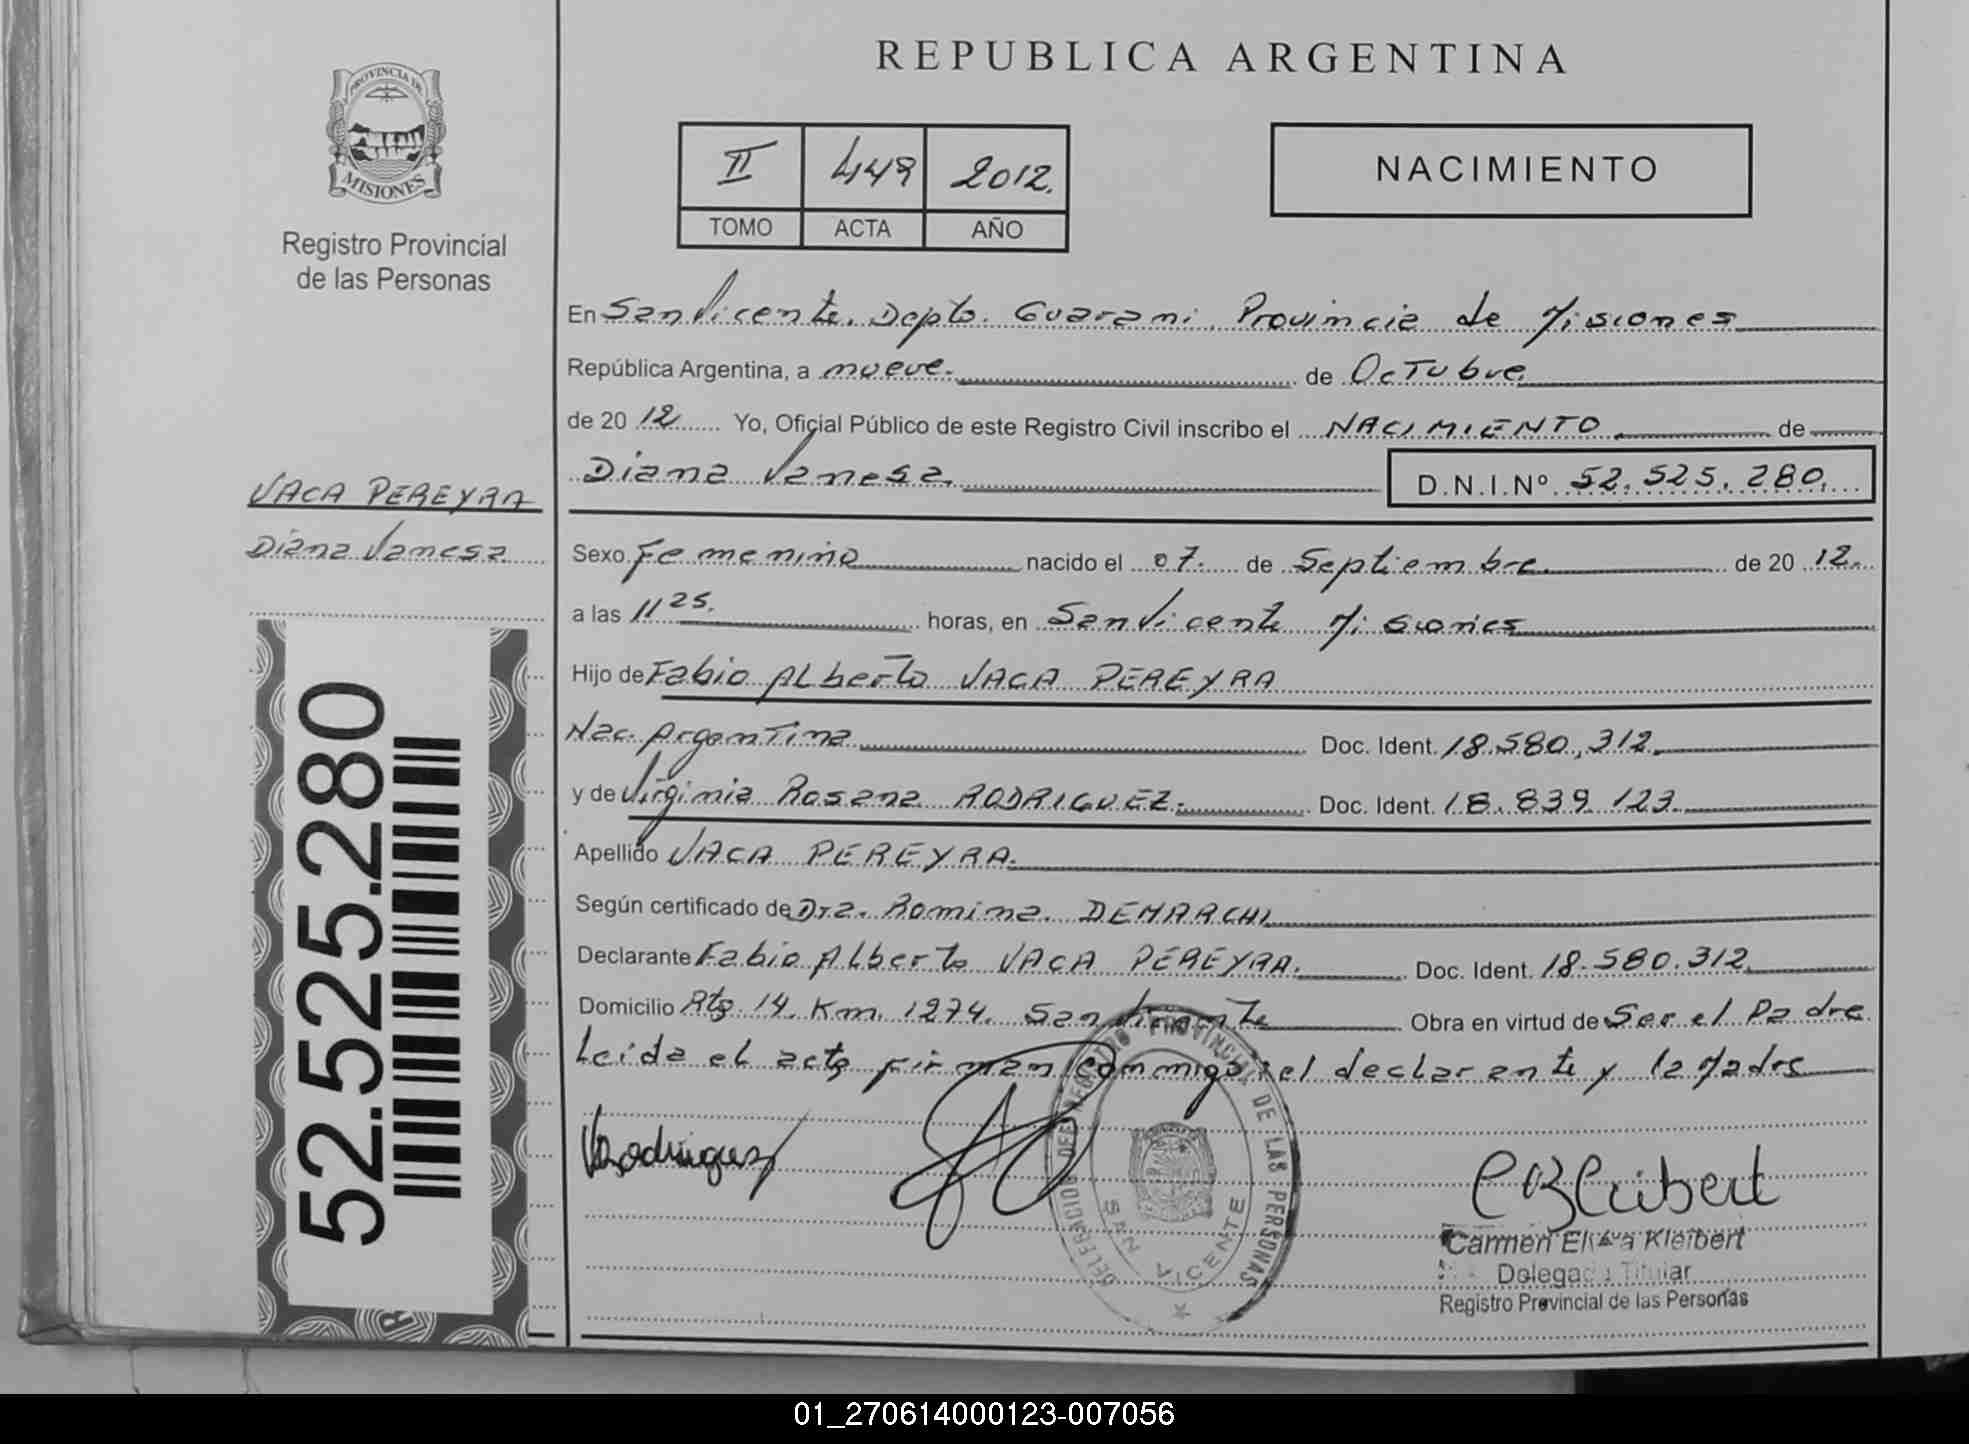 REPUBLICA ARGENTINA
PROVINCIA DE
MISIONES
Registro Provincial
de las Personas
II 449 2012.
TOMO ACTA AÑO
NACIMIENTO
En San Vicente. Depto. Guarani. Provincia de Misiones
República Argentina, a nueve. de Octubre
de 20 12 Yo, Oficial Público de este Registro Civil inscribo el NACIMIENTO de
Diana Vanesa. D.N.I.Nº 52.525.280.
VACA PEREYRA
Diana Vanesa
Sexo Femenino nacido el 07. de Septiembre. de 20 12.
a las 11 25. horas, en San Vicente Misiones
Hijo de Fabio Alberto VACA PEREYRA
Nac. Argentina Doc. Ident. 18.580.312.
y de Virginia Rosana RODRIGUEZ. Doc. Ident. 18.839.123.
Apellido VACA PEREYRA.
Según certificado de Dra. Romina. DEMARCHI
Declarante Fabio Alberto VACA PEREYRA. Doc. Ident. 18.580.312.
Domicilio Rta 14. Km. 1274. San Vicente Obra en virtud de Ser el Padre
Leida el acta firman conmigo el declarante y la Madre
52.525.280
VRodriguez
DELEGACION DEL REGISTRO PROVINCIAL DE LAS PERSONAS
SAN VICENTE
CEKleibert
Carmen Elena Kleibert
Delegada Titular
Registro Provincial de las Personas
01_270614000123-007056